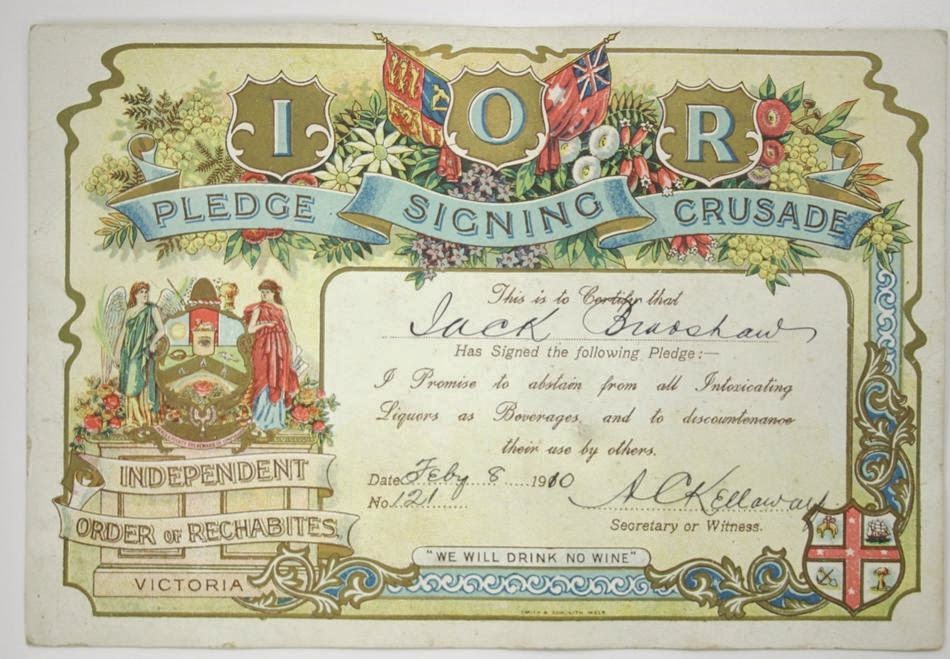 I O R
PLEDGE SIGNING CRUSADE
This is to Certify that
Jack Bradshaw
Has Signed the following Pledge:—
I Promise to abstain from all Intoxicating
Liquors as Beverages, and to discountenance
their use by others.
Date Feby 8 1910
No. 121
A C Kellaway
Secretary or Witness.
INDEPENDENT
ORDER OF RECHABITES.
VICTORIA
"WE WILL DRINK NO WINE"